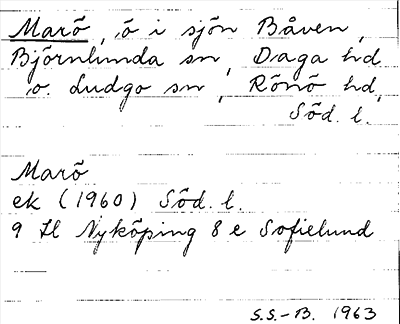 Marö, ö i sjön Båven,
Björnlunda sn, Daga hd
o. Ludgo sn, Rönö hd,
Söd. l.
Marö
ek (1960) Söd. l.
9 H Nyköping 8 e Sofielund
S.S.-B. 1963